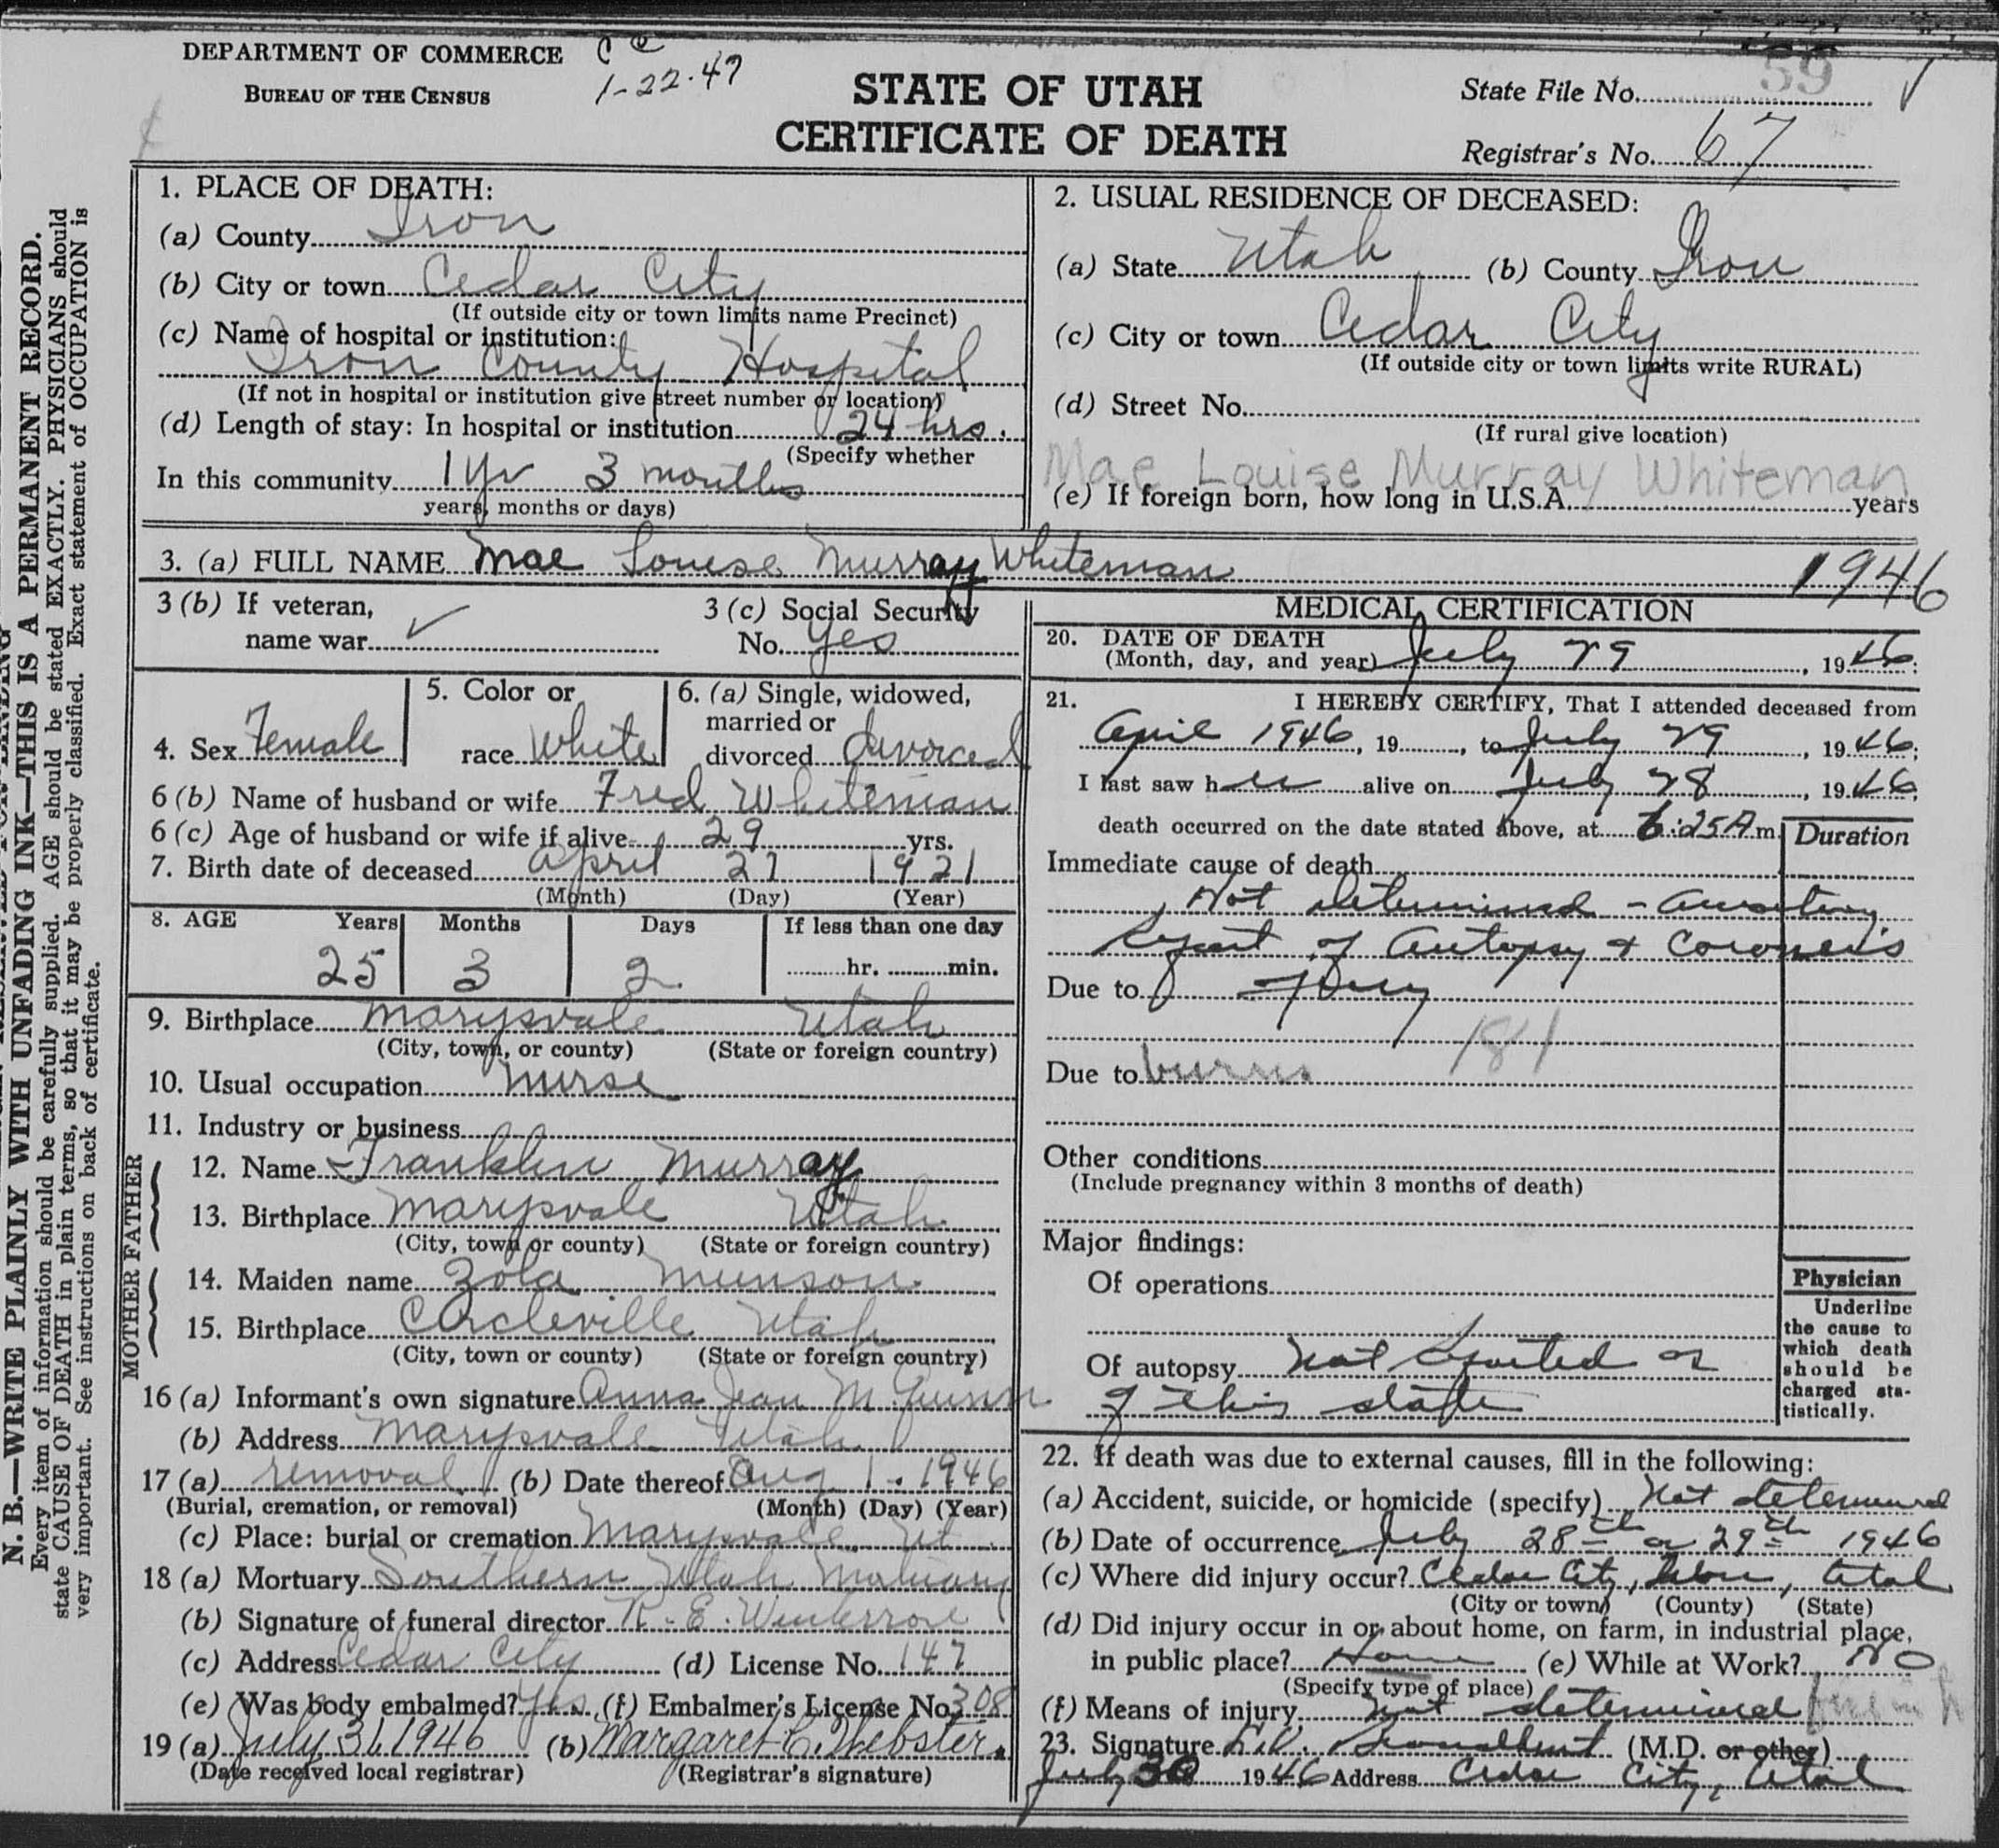 DEPARTMENT OF COMMERCE
BUREAU OF THE CENSUS
1-22-47
STATE OF UTAH
CERTIFICATE OF DEATH
State File No. 59
Registrar's No. 67
N. B.—WRITE PLAINLY WITH UNFADING INK—THIS IS A PERMANENT RECORD.
Every item of information should be carefully supplied. AGE should be stated EXACTLY. PHYSICIANS should
state CAUSE OF DEATH in plain terms, so that it may be properly classified. Exact statement of OCCUPATION is
very important. See instructions on back of certificate.
1. PLACE OF DEATH:
(a) County Iron
(b) City or town Cedar City
(If outside city or town limits name Precinct)
(c) Name of hospital or institution:
Iron County Hospital
(If not in hospital or institution give street number or location)
(d) Length of stay: In hospital or institution 24 hrs.
(Specify whether
In this community 1 yr 3 months
years, months or days)
2. USUAL RESIDENCE OF DECEASED:
(a) State Utah (b) County Iron
(c) City or town Cedar City
(If outside city or town limits write RURAL)
(d) Street No.
(If rural give location)
Mae Louise Murray Whiteman
(e) If foreign born, how long in U.S.A. years
3. (a) FULL NAME Mae Louise Murray Whiteman 1946
3 (b) If veteran,
name war ✓
3 (c) Social Security
No. yes
4. Sex Female
5. Color or
race White
6. (a) Single, widowed,
married or
divorced divorced
6 (b) Name of husband or wife Fred Whiteman
6 (c) Age of husband or wife if alive 29 yrs.
7. Birth date of deceased April 27 1921
(Month) (Day) (Year)
8. AGE Years Months Days If less than one day
25 3 2 hr. min.
9. Birthplace Marysvale Utah
(City, town, or county) (State or foreign country)
10. Usual occupation nurse
11. Industry or business
FATHER
12. Name Franklin Murray
13. Birthplace Marysvale Utah
(City, town or county) (State or foreign country)
MOTHER
14. Maiden name Zola Munson
15. Birthplace Circleville Utah
(City, town or county) (State or foreign country)
16 (a) Informant's own signature Anna Jean M.
(b) Address Marysvale Utah
17 (a) removal (b) Date thereof Aug 1 - 1946
(Burial, cremation, or removal) (Month) (Day) (Year)
(c) Place: burial or cremation Marysvale, Ut
18 (a) Mortuary Southern Utah Mortuary
(b) Signature of funeral director R. E.
(c) Address Cedar City (d) License No. 147
(e) Was body embalmed? yes (f) Embalmer's License No. 308
19 (a) July 31, 1946 (b) Margaret C. Webster.
(Date received local registrar) (Registrar's signature)
MEDICAL CERTIFICATION
20. DATE OF DEATH
(Month, day, and year) July 29, 1946.
21. I HEREBY CERTIFY, That I attended deceased from
April 1946, 19 , to July 29, 1946;
I last saw her alive on July 28, 1946,
death occurred on the date stated above, at 6:25 A m.
Duration
Immediate cause of death
Not determined - awaiting
report of Autopsy & Coroner's
Due to Jury
181
Due to burns
Other conditions
(Include pregnancy within 3 months of death)
Major findings:
Of operations
Of autopsy Not reported as
of this date
Physician
Underline
the cause to
which death
should be
charged sta-
tistically.
22. If death was due to external causes, fill in the following:
(a) Accident, suicide, or homicide (specify) Not determined
(b) Date of occurrence July 28th or 29th 1946
(c) Where did injury occur? Cedar City, Iron, Utah
(City or town) (County) (State)
(d) Did injury occur in or about home, on farm, in industrial place,
in public place? Home (e) While at Work? No
(Specify type of place)
(f) Means of injury Not determined fire in
23. Signature (M.D. or other)
July 30 1946 Address Cedar City, Utah